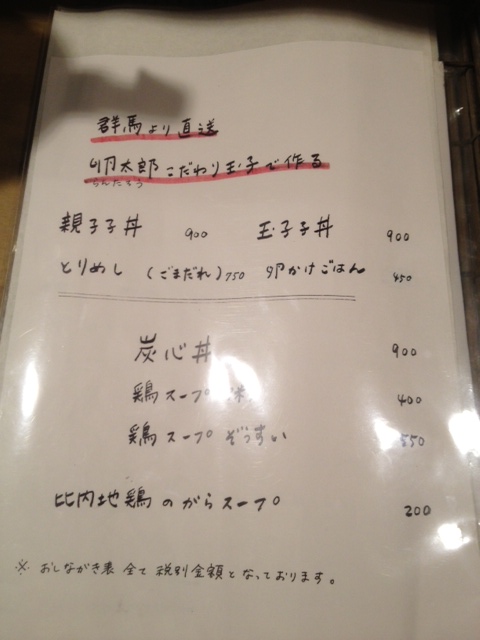 群馬より直送
卵太郎こだわり玉子で作る
らんたろう
親子子丼 900 玉子子丼 900
とりめし (ごまだれ) 750 卵かけごはん 450
炭心丼 900
鶏スープ 400
鶏スープ ぞうすい 550
比内地鶏のがらスープ 200
※ おしながき表 全て 税別金額となっております。